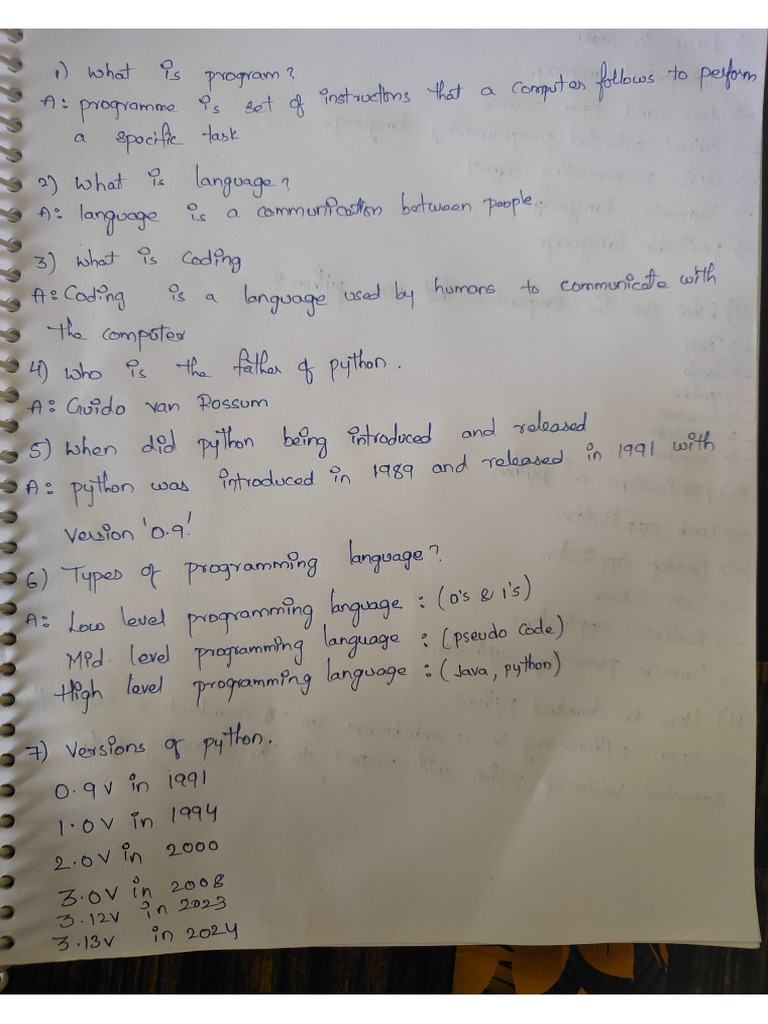 1) What is program?
A: programme is set of instructions that a computer follows to perform
a specific task
2) What is language?
A: language is a communication between people.
3) What is Coding
A: Coding is a language used by humans to communicate with
the computer
4) Who is the father of python.
A: Guido van Rossum
5) When did python being introduced and released
A: python was introduced in 1989 and released in 1991 with
Version '0.9'.
6) Types of programming language?
A: Low level programming language : (0's & 1's)
Mid level programming language : (pseudo code)
High level programming language : (Java, python)
7) Versions of python.
0.9v in 1991
1.0v in 1994
2.0v in 2000
3.0v in 2008
3.12v in 2023
3.13v in 2024